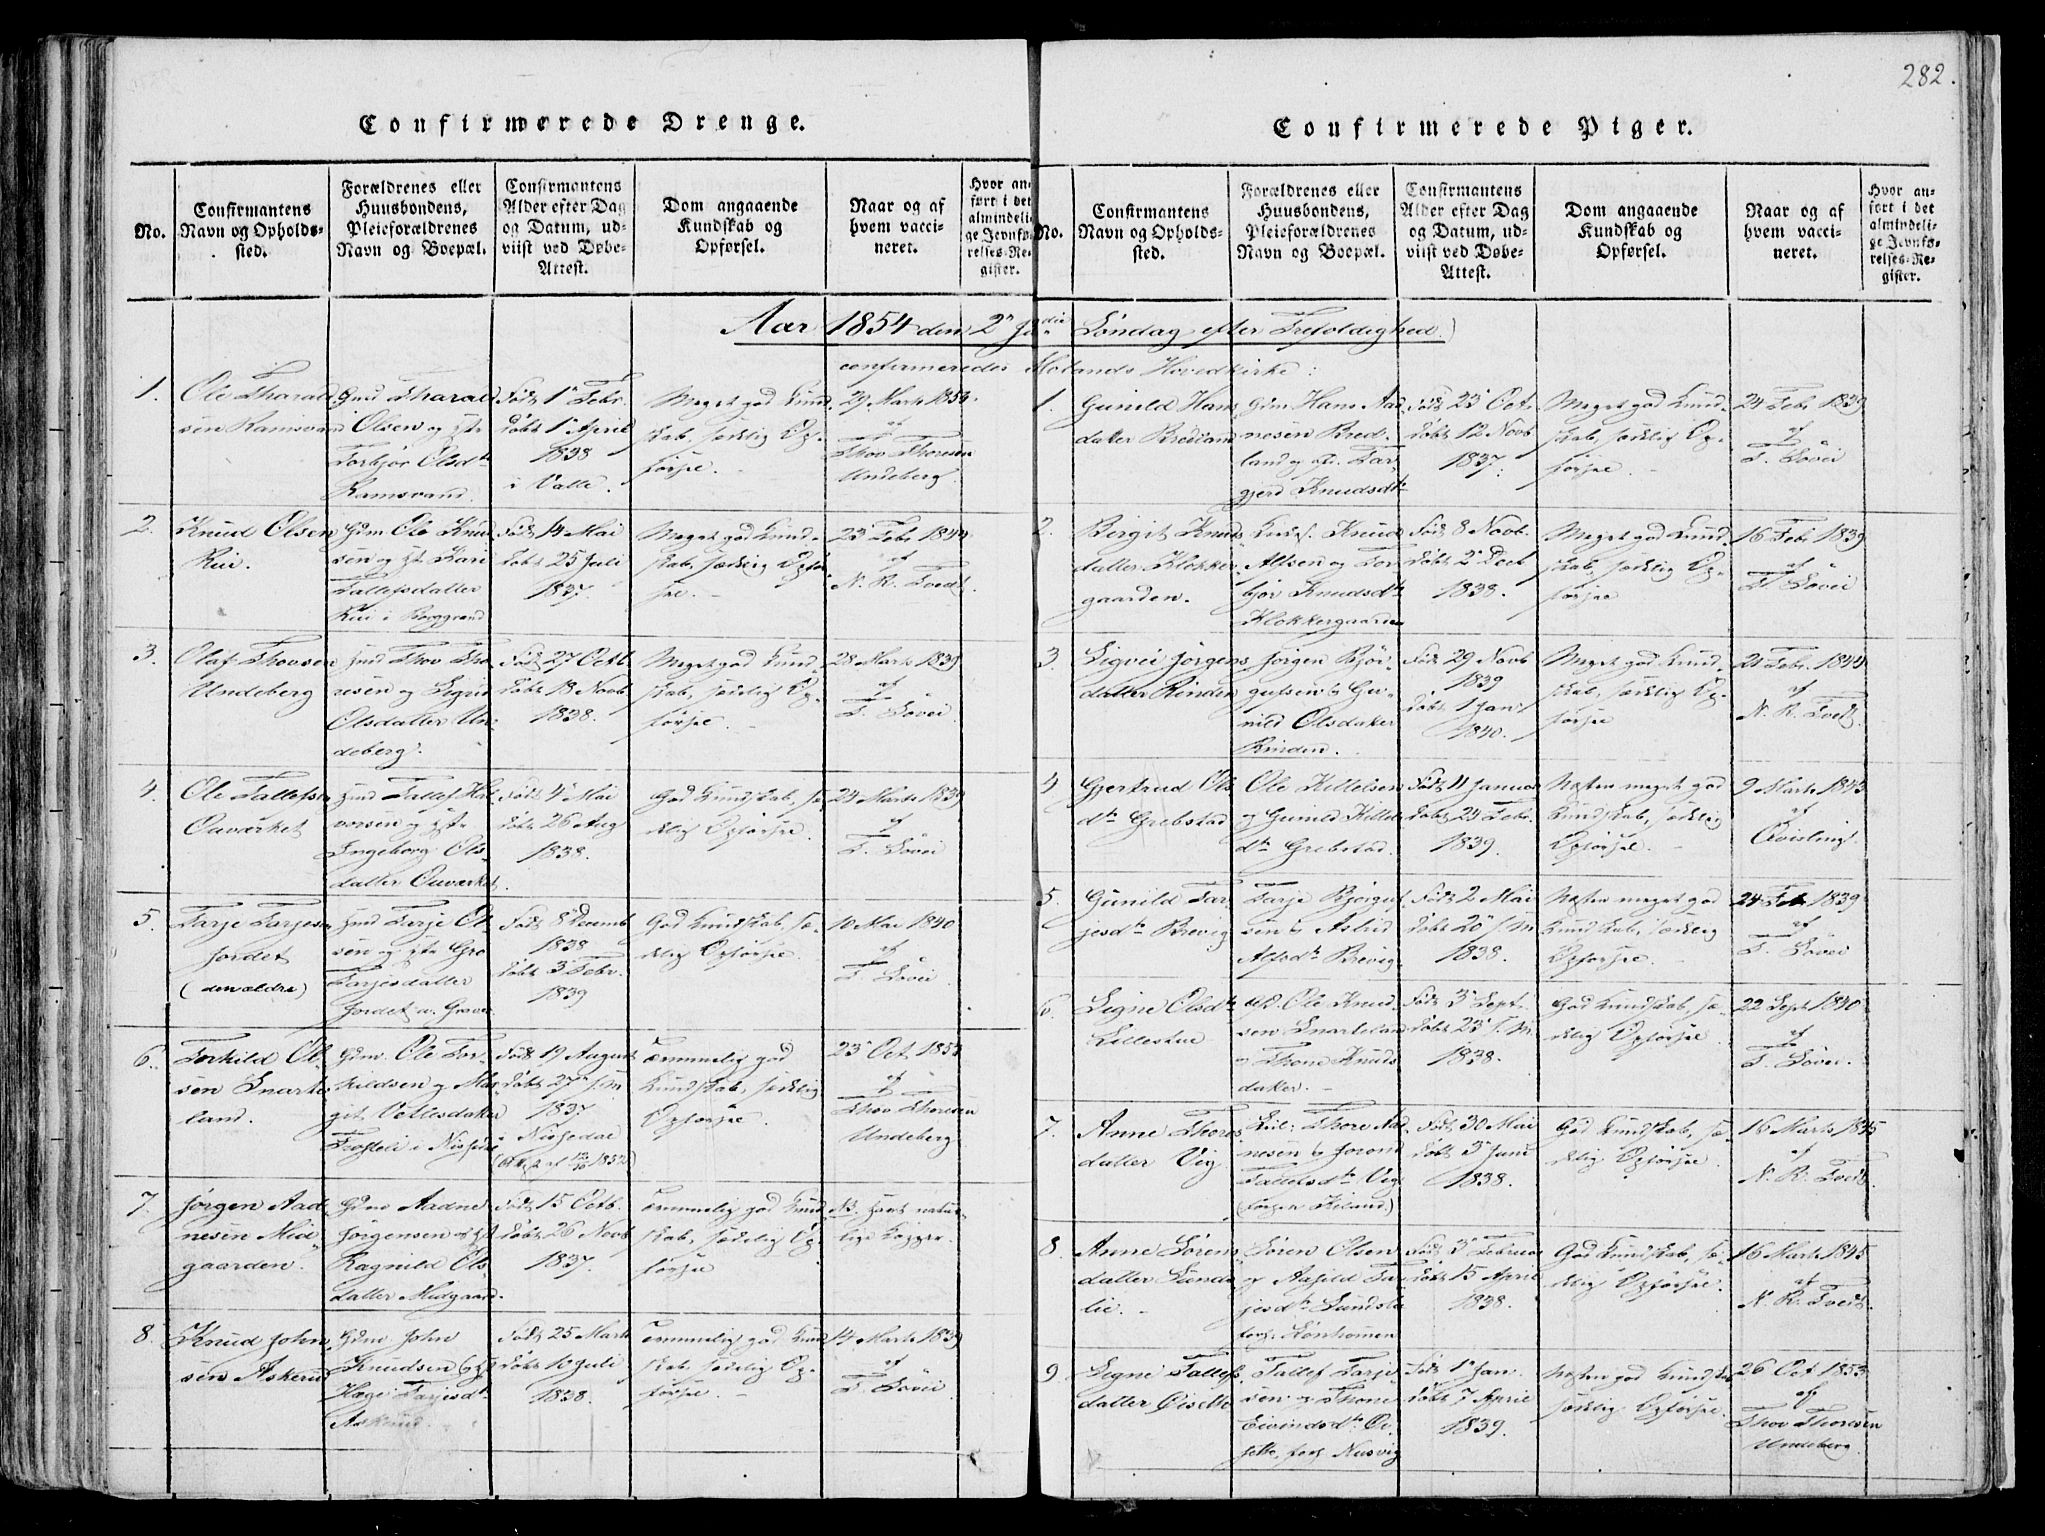 282.
Confirmerede Drenge.
No.
Confirmantens
Navn og Opholds-
sted.
Forældrenes eller
Huusbondens,
Pleieforældrenes
Navn og Boepæl.
Confirmantens
Alder efter Dag
og Datum, ud-
viist ved Døbe-
Attest.
Dom angaaende
Kundskab og
Opførsel.
Naar og af
hvem vacci-
neret.
Hvor an-
ført i det
almindeli-
ge Jevnfø-
relses-Re-
gister.
Aar 1854 den 2den Søndag efter Trefoldighed
confirmeredes Molands Hovedkirke:
1.
Ole Tharald
sen Ramsvand
Gmd Tharald
Olsen og
Torbjør Olsdtr
Ramsvand.
Født 1 Febr.
døbt 1 April
1838
i Valle.
Meget god Kund-
skab, sædelig Op-
førsel.
29 Marts 1854
af
Thov Thoresen
Undeberg.
2.
Knud Olsen
Rui.
Gdm Ole Knud
sen og Kari
Tallefsdatter
Rui i Borggrand
Født 14 Mai
døbt 25 Juli
1837.
Meget god Kund-
skab, sædelig Opfør
sel.
23 Feb 1844
af
N. R. Tvedt
3.
Olaf Thovsen
Undeberg
Hmd Thov Tho
resen og Sigrid
Olsdatter Un
deberg.
Født 27 Octb
døbt 18 Novb
1838.
Meget god Kund
skab, sædelig Op-
førsel.
28 Marts 1839
af
T. Løvei
4.
Ole Tallefsen
Ouværket
Hmd Tallef Hal
vorsen og
Ingeborg Ols-
datter Ouværket.
Født 4 Mai
døbt 26 Aug
1838.
God Kundskab, sæ-
delig Opførsel.
24 Marts 1839
af
T. Løvei
5.
Tarje Tarjesen
Jordet
(den ældre)
Hmd Tarje Ol
sen og Gro
Tarjesdatter
Jordet
Født 8 Decemb
1838
døbt 3 Febr.
1839
God Kundskab, sæ-
delig Opførsel.
10 Mai 1840
af
T. Løvei
6.
Torkild Ol
sen Snarte
land.
Gdm. Ole Tor-
kildsen og Mar
git Vetlesdatter
i Nissedal
Født 19 August
døbt 27 s. M
1837
i Nissedal
Temmelig god
Kundskab, sædelig
Opførsel
23 Oct. 1853
af
Thov Thoresen
Undeberg
7.
Jørgen Aad
nesen Mid-
gaarden.
Gdm Aadne
Jørgensen og
Ragnild Ols
datter Midgaard.
Født 15 Octb.
døbt 26 Novb
1837.
Temmelig god Kund
skab, sædelig Op
førsel
NB. Havt natur-
lige Kopper.
8.
Knud John
sen Askerud
Gdm John
Knudsen og
Hæge Tarjesdtr
Askerud.
Født 25 Marts
døbt 10 Juli
1838.
Temmelig god Kund
skab, sædelig Op-
førsel.
14 Marts 1839
af
T. Løvei
Confirmerede Piger.
No.
Confirmantens
Navn og Opholds-
sted.
Forældrenes eller
Huusbondens,
Pleieforældrenes
Navn og Boepæl.
Confirmantens
Alder efter Dag
og Datum, ud-
viist ved Døbe-
Attest.
Dom angaaende
Kundskab og
Opførsel.
Naar og af
hvem vacci-
neret.
Hvor an-
ført i det
almindeli-
ge Jevnfø-
relses-Re-
gister.
1.
Gunild Hans
datter Bredland
Gdm. Hans Aad
nesen Bred-
land og Tar-
gjerd Knudsdtr
Født 23 Oct.
døbt 12 Novb
1837.
Meget god Kund-
skab, sædelig Op-
førsel.
24 Feb. 1839
af
T. Løvei
2.
Bergit Knuds
datter Klokker-
gaarden.
Knud
Alfsen og Tor
bjør Knudsdtr
Klokkergaarden
Født 8 Novb.
døbt 2 Decb
1838.
Meget god Kund-
skab, sædelig Op-
førsel
16 Feb. 1839
af
T. Løvei
3.
Sigvei Jørgens
datter Rinden
Jørgen Bjør
gufsen & Gu-
nild Olsdatter
Rinden.
Født 29 Novb
1839
døbt 1 Jan
1840.
Meget god Kund
skab, sædelig Op-
førsel
21 Febr. 1844
af
N. R. Tvedt.
4
Gjertrud Ols
dtr Grebstad
Ole Killelsen
og Gunild Killels
dtr Grebstad.
Født 11 Januar
døbt 24 Febr.
1839.
Næsten meget god
Kundskab, sædelig
Opførsel.
9 Marts 1843
af
Qvisling.
5.
Gunild Tar
jesdtr Brevig
Tarje Bjørguf
sen & Astrid
Alfsdtr Brevig
Født 2 Mai
døbt 20 s. M
1838.
Næsten meget god
Kundskab, sædelig
Opførsel.
24 Feb 1839
af
T. Løvei
6.
Signe Olsdtr
Lillestue
Ole Knud
sen Snarteland
og Thone Knuds
datter.
Født 3 Sept.
døbt 23 s. M
1838.
God Kundskab, sæ-
delig Opførsel.
22 Sept 1840
af
T. Løvei.
7.
Anne Thores
datter Vig
Thore Aad
nesen & Joron
Tallefsdtr Vig
Født 30 Mai
døbt 3 Juni
1838.
God Kundskab, sæ-
delig Opførsel.
16 Marts 1845
af
N. R. Tvedt.
8.
Anne Sørens
datter Lunds
lie.
Søren Olsen
og Aasild Tar
jesdtr Lundsli
Født 3 Februar
døbt 15 April
1838.
God Kundskab, sæ-
delig Opførsel.
16 Marts 1845
af
N. R. Tvedt.
9
Signe Tallefs
datter Oisette
Tallef Tarje
sen og Thone
Eivindsdtr Oi-
sette,
Født 1 Jan.
døbt 7 April
1839.
Næsten god Kundskab
sædelig Opførsel.
26 Oct 1853
af
Thov Thoresen
Undeberg.